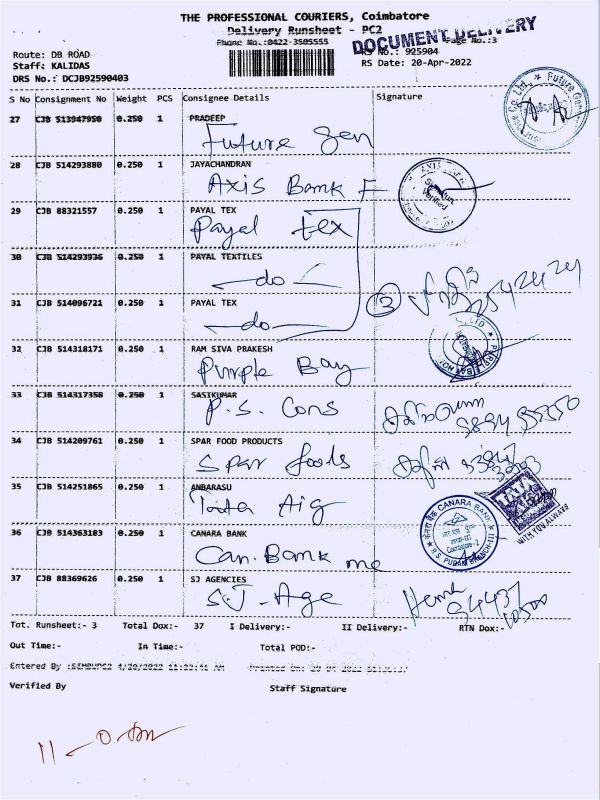 THE PROFESSIONAL COURIERS, Coimbatore
Delivery Runsheet - PC2
DOCUMENT DELIVERY
Phone No.:0422-3505555
Page No.:3
Route: DB ROAD
RS No.: 925904
Staff: KALIDAS
RS Date: 20-Apr-2022
DRS No.: DCJB92590403
S No Consignment No Weight PCS Consignee Details Signature
27 CJB 513947950 0.250 1 PRADEEP
Future Gen
28 CJB 514293880 0.250 1 JAYACHANDRAN
Axis Bank F
29 CJB 88321557 0.250 1 PAYAL TEX
Payal tex
30 CJB 514293936 0.250 1 PAYAL TEXTILES
do
31 CJB 514096721 0.250 1 PAYAL TEX
do
3
32 CJB 514318171 0.250 1 RAM SIVA PRAKESH
Purple Bay
33 CJB 514317358 0.250 1 SASIKUMAR
P.S. Cons
34 CJB 514209761 0.250 1 SPAR FOOD PRODUCTS
Spar foods
35 CJB 514251865 0.250 1 ANBARASU
Tata Aig
TATA
WITH YOU ALWAYS
36 CJB 514363183 0.250 1 CANARA BANK
Can. Bank me
CANARA BANK
R.S. PURAM BRANCH-III
37 CJB 88369626 0.250 1 SJ AGENCIES
S.J - Age
Tot. Runsheet:- 3 Total Dox:- 37 I Delivery:- II Delivery:- RTN Dox:-
Out Time:- In Time:- Total POD:-
Verified By
Staff Signature